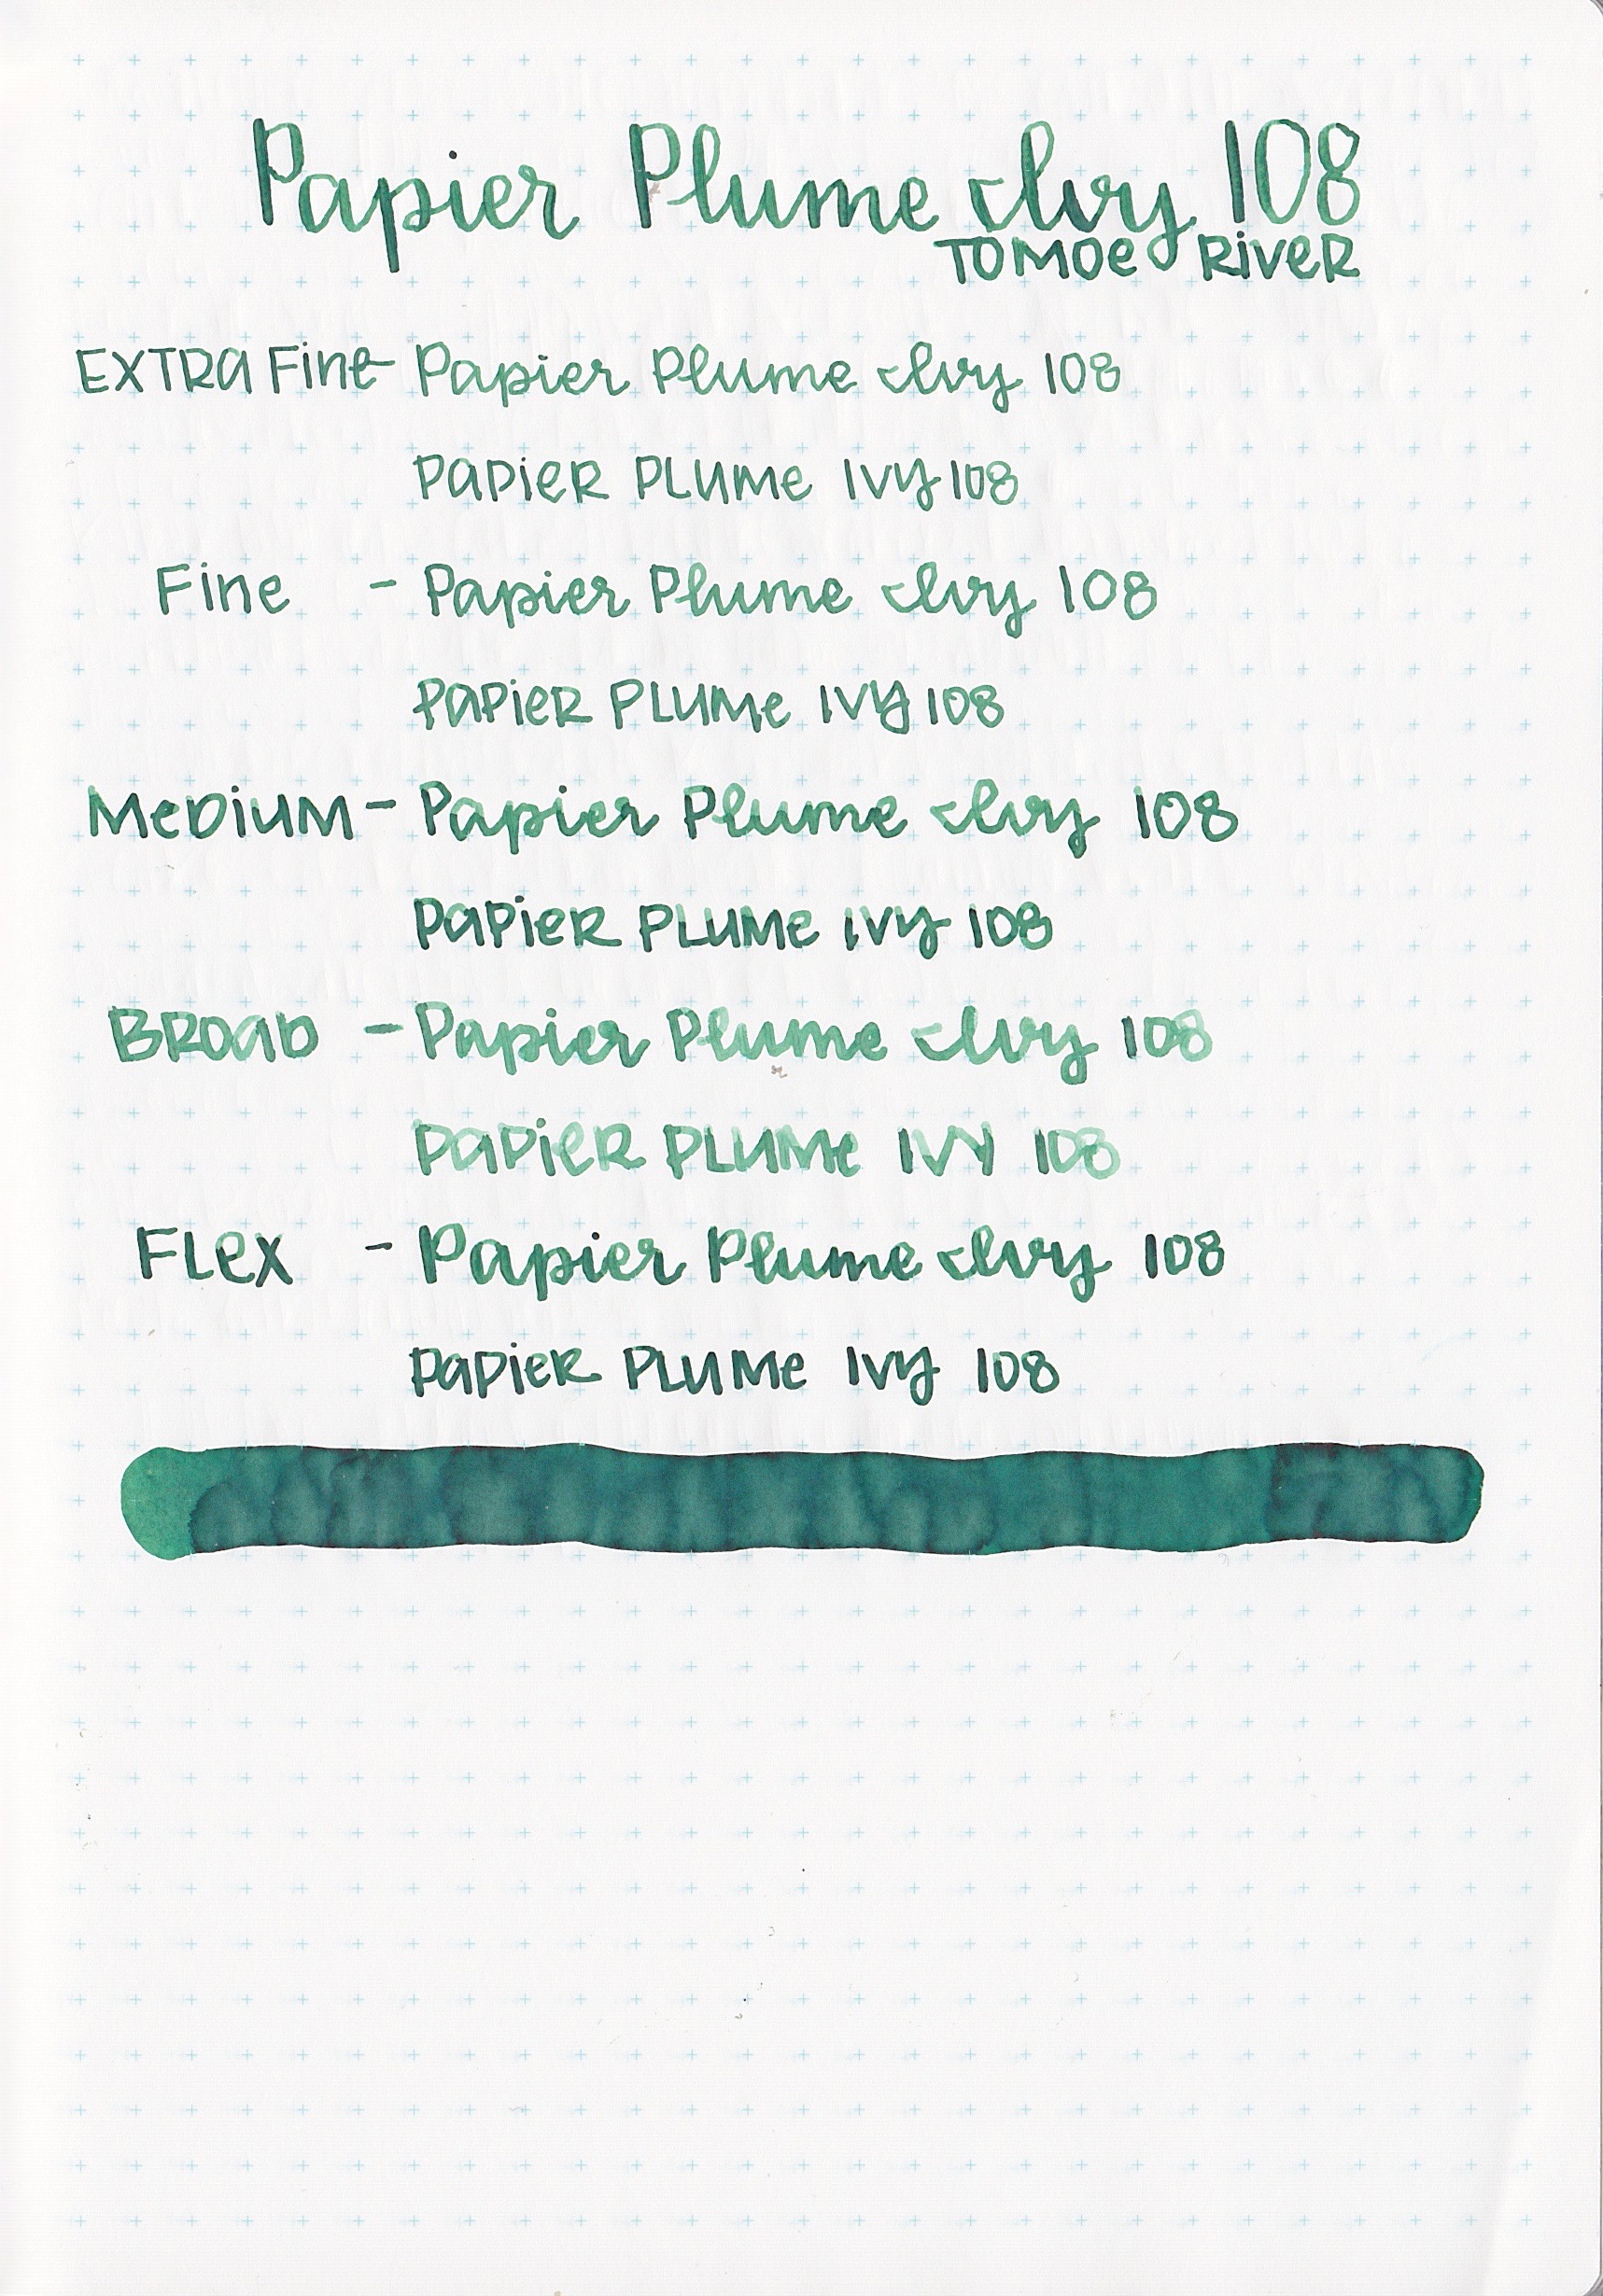 Papier Plume Ivy 108
TOMOE RIVER
EXTRA Fine - Papier Plume Ivy 108
PAPIER PLUME IVY 108
Fine - Papier Plume Ivy 108
PAPIER PLUME IVY 108
MEDIUM - Papier Plume Ivy 108
PAPIER PLUME IVY 108
BROAD - Papier Plume Ivy 108
PAPIER PLUME IVY 108
FLEX - Papier Plume Ivy 108
PAPIER PLUME IVY 108